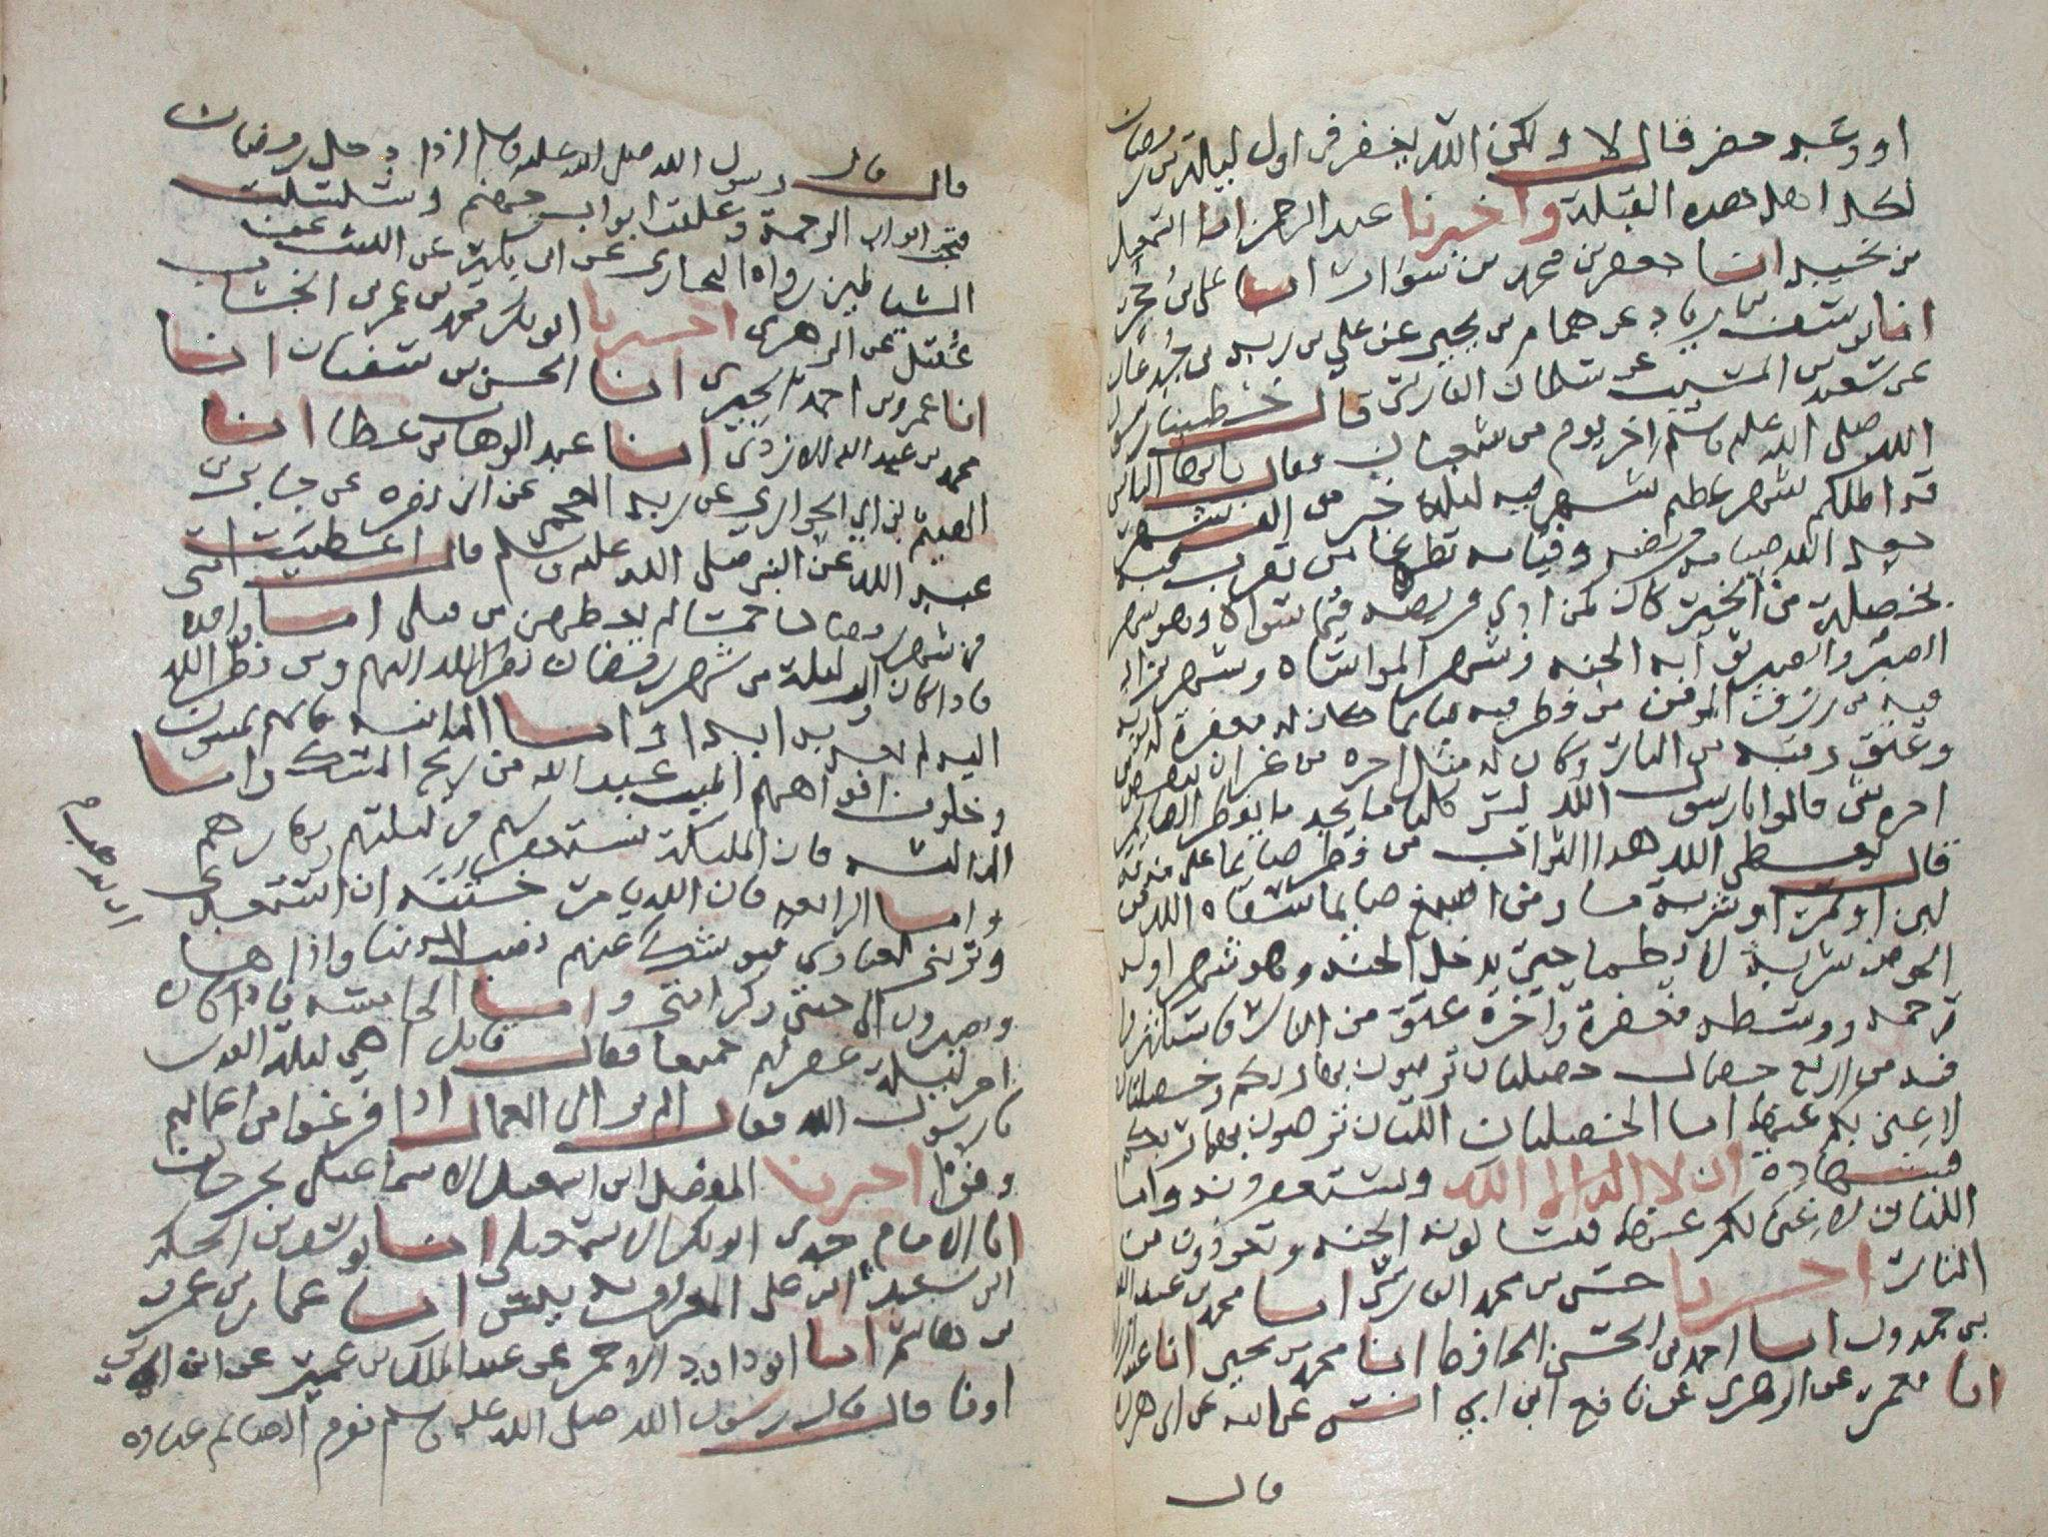 او وعيد حضر قال لا ولكن الله يغفر في اول ليلة من رمضان
لكل اهل هذه القبلة واخبرنا عبد الرحمن انا اسمعيل
بن نجيد انا جعفر بن محمد بن سوار انا علي بن حجر
انا يوسف بن زياد عن همام بن يحيى عن علي بن زيد بن جدعان
عن سعيد بن المسيب عن سلمان الفارسي قال خطبنا رسول
الله صلى الله عليه وسلم اخر يوم من شعبان فقال يايها الناس
قد اظلكم شهر عظيم شهر فيه ليلة خير من الف شهر
جعل الله صيامه فريضه وقيامه تطوعا من تقرب فيه
بخصلة من الخير كان كمن ادى فريضه فيما سواه وهو شهر
الصبر والصبر ثوابه الجنه وشهر المواساه وشهر يزاد
فيه من رزق المومن من فطر فيه صايما كان له مغفرة لذنوبه
وعتق رقبته من النار وكان له مثل اجره من غير ان ينقص من
اجره شي قالوا يا رسول الله ليس كلنا ما يجد ما يفطر الصايم
قال يعطي الله هذا الثواب من فطر صايما على مذقة
لبن او تمرة او شربة ما ومن اشبع صايما سقاه الله من
الحوض شربة لا يظما حتى يدخل الجنه وهو شهر اوله
رحمه ووسطه مغفرة واخره عتق من النار فاستكثروا
فيه من اربع خصال خصلتان ترضون بها ربكم وخصلتان
لا غنى بكم عنها اما الخصلتان اللتان ترضون بها ربكم
فشهادة ان لا اله الا الله وتستغفرونه واما
اللتان لا غنى لكم عنها فتسالون الجنه وتعوذون من
النار اخبرنا حسن بن محمد الفارسي انا محمد بن عبد الله
بن حمدون انا احمد بن الحسن الحافظ انا محمد بن يحيى انا عبد الرزاق
انا معمر عن الزهري عن نافع ابن ابي انس عن ابيه عن ابي هريرة
قال
قال قال رسول الله صلى الله عليه وسلم اذا دخل رمضان
فتح ابواب الرحمة وغلقت ابواب جهنم وسلسلت
الشياطين رواه البخاري عن ابن بكير عن الليث عن
عقيل عن الزهري اخبرنا ابو بكر محمد بن عمر الخشاب
انا عمرو بن احمد الحيري انا الحسن بن سفيان انا
محمد بن عبد الله الازدي انا عبد الوهاب بن عطا انا
الهيثم بن ابي الحواري عن زيد العمي عن ابي نضره عن جابر بن
عبد الله عن النبي صلى الله عليه وسلم قال اعطيت امتي
في شهر رمضان خمسا لم يعطهن نبي قبلي اما واحده
فاذا كان اول ليلة من شهر رمضان نظر الله اليهم ومن نظر الله
اليه لم يعذبه ابدا واما الثانيه فانهم يمسون
وخلوف افواههم اطيب عند الله من ريح المسك واما
الثالثه فان الملايكة تستغفر لهم في ليلتهم ونهارهم
واما الرابعه فان الله يامر جنته ان استعدي
وتزيني لعبادي فيوشك عنهم نصب الدنيا واذاها
ويصيرون الى جنتي وكرامتي واما الخامسه فاذا كان
اخر ليلة غفر لهم جميعا فقال قايل اهي ليلة القدر
يا رسول الله فقال الم تر الى العمال اذا فرغوا من اعمالهم
وفوا اخبرنا المفضل ابن اسمعيل الاسماعيلي بجرجان
انا الامام جدي ابو بكر الاسمعيلي انا
ابن سعيد انا عمار بن عمر
انا ابو داود عن عبد الملك بن عمير عن ابن ابي
اوفا قال قال رسول الله صلى الله عليه وسلم نوم الصايم عباده